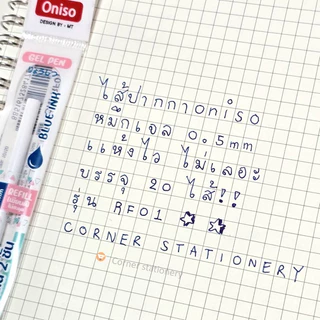 Oniso
DESIGN BY - MT
GEL PEN
BLUE INK
REFILL
ไส้ปากกาoniso
หมึกเจล 0.5mm
แห้งไว ไม่เลอะ
บรรจุ 20 ไส้!!
รุ่น RF01
CORNER STATIONERY
Corner stationery